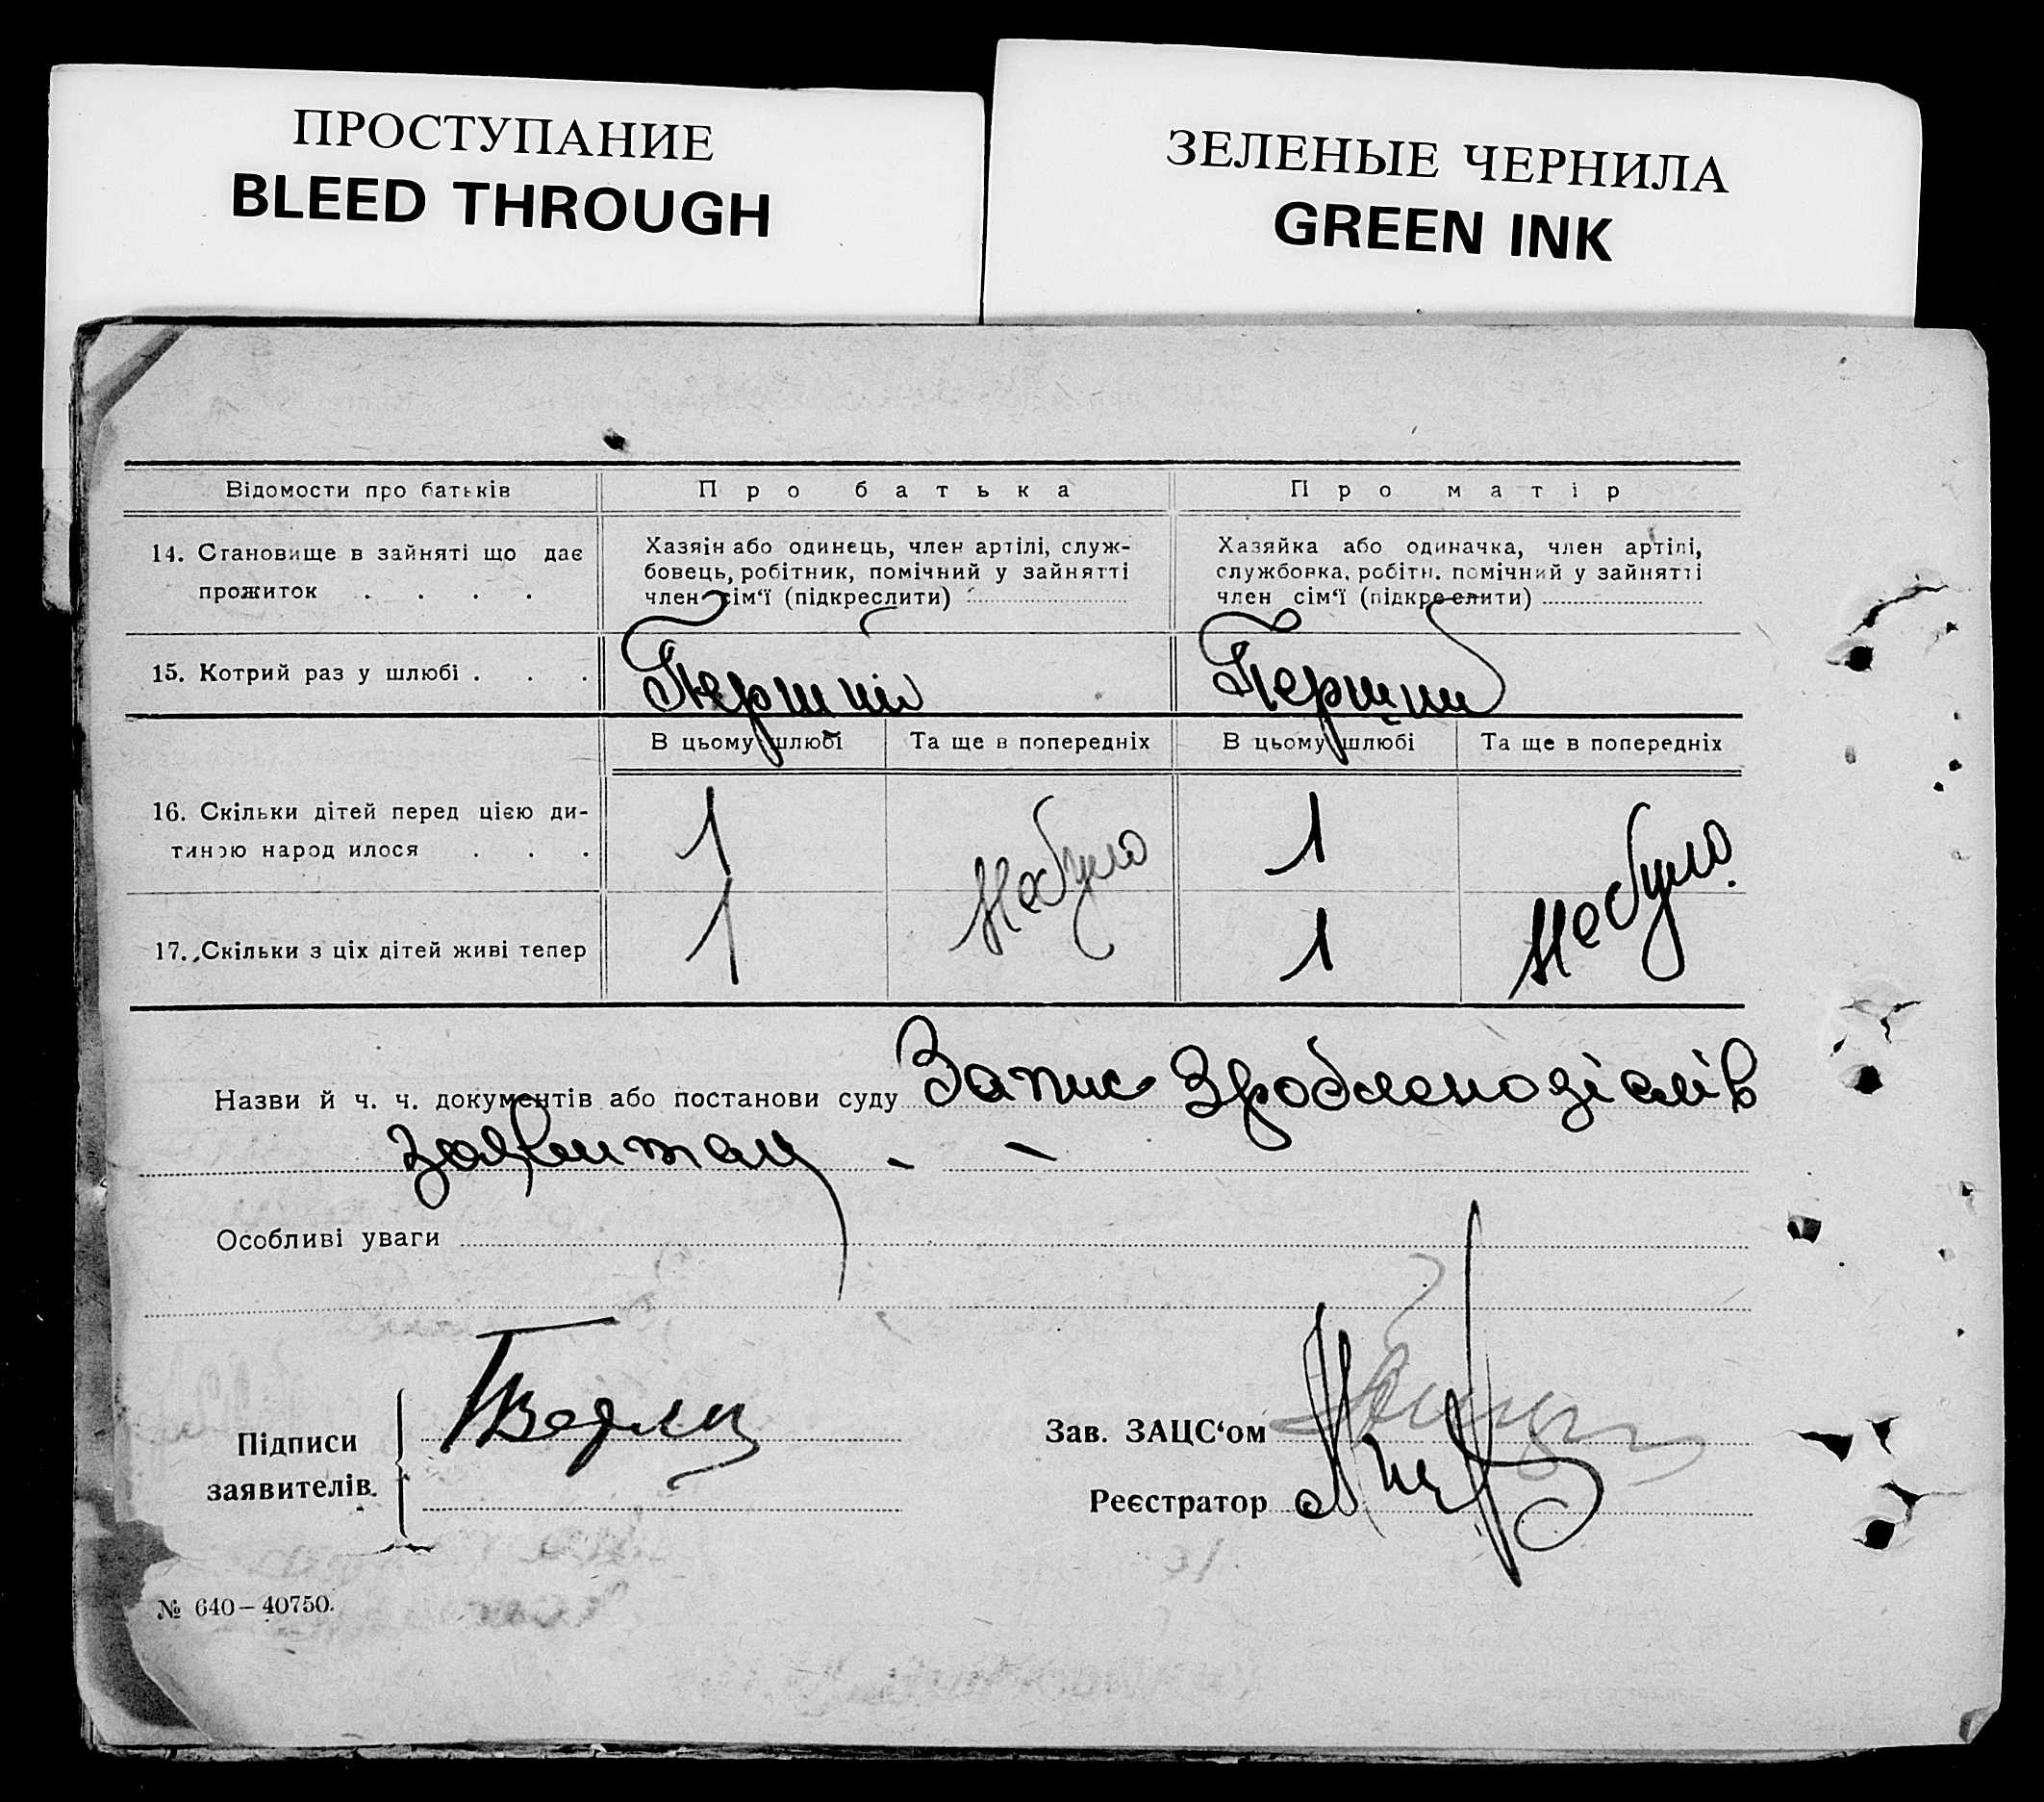 ПРОСТУПАНИЕ
BLEED THROUGH
ЗЕЛЕНЫЕ ЧЕРНИЛА
GREEN INK
Відомости про батьків
Про батька
Про матір
14. Становище в зайняті що дає
прожиток . . . .
Хазяін або одинець, член артілі, служ-
бовець, робітник, помічний у зайнятті
член сім‘ї (підкреслити)
Хазяйка або одиначка, член артілі,
службовка, робітн. помічний у зайнятті
член сім‘ї (підкреслити)
15. Котрий раз у шлюбі . . .
Перший
Перший
В цьому шлюбі
Та ще в попередніх
В цьому шлюбі
Та ще в попередніх
16. Скільки дітей перед цією ди-
тиною народилося . . .
1
Небуло
1
Небуло
17. Скільки з ціх дітей живі тепер
1
1
Назви й ч. ч. документів або постанови суду Запис Зроблено зі слів
Особливі уваги
Підписи
заявителів.
Зав. ЗАЦС‘ом
Реєстратор
№ 640—40750.